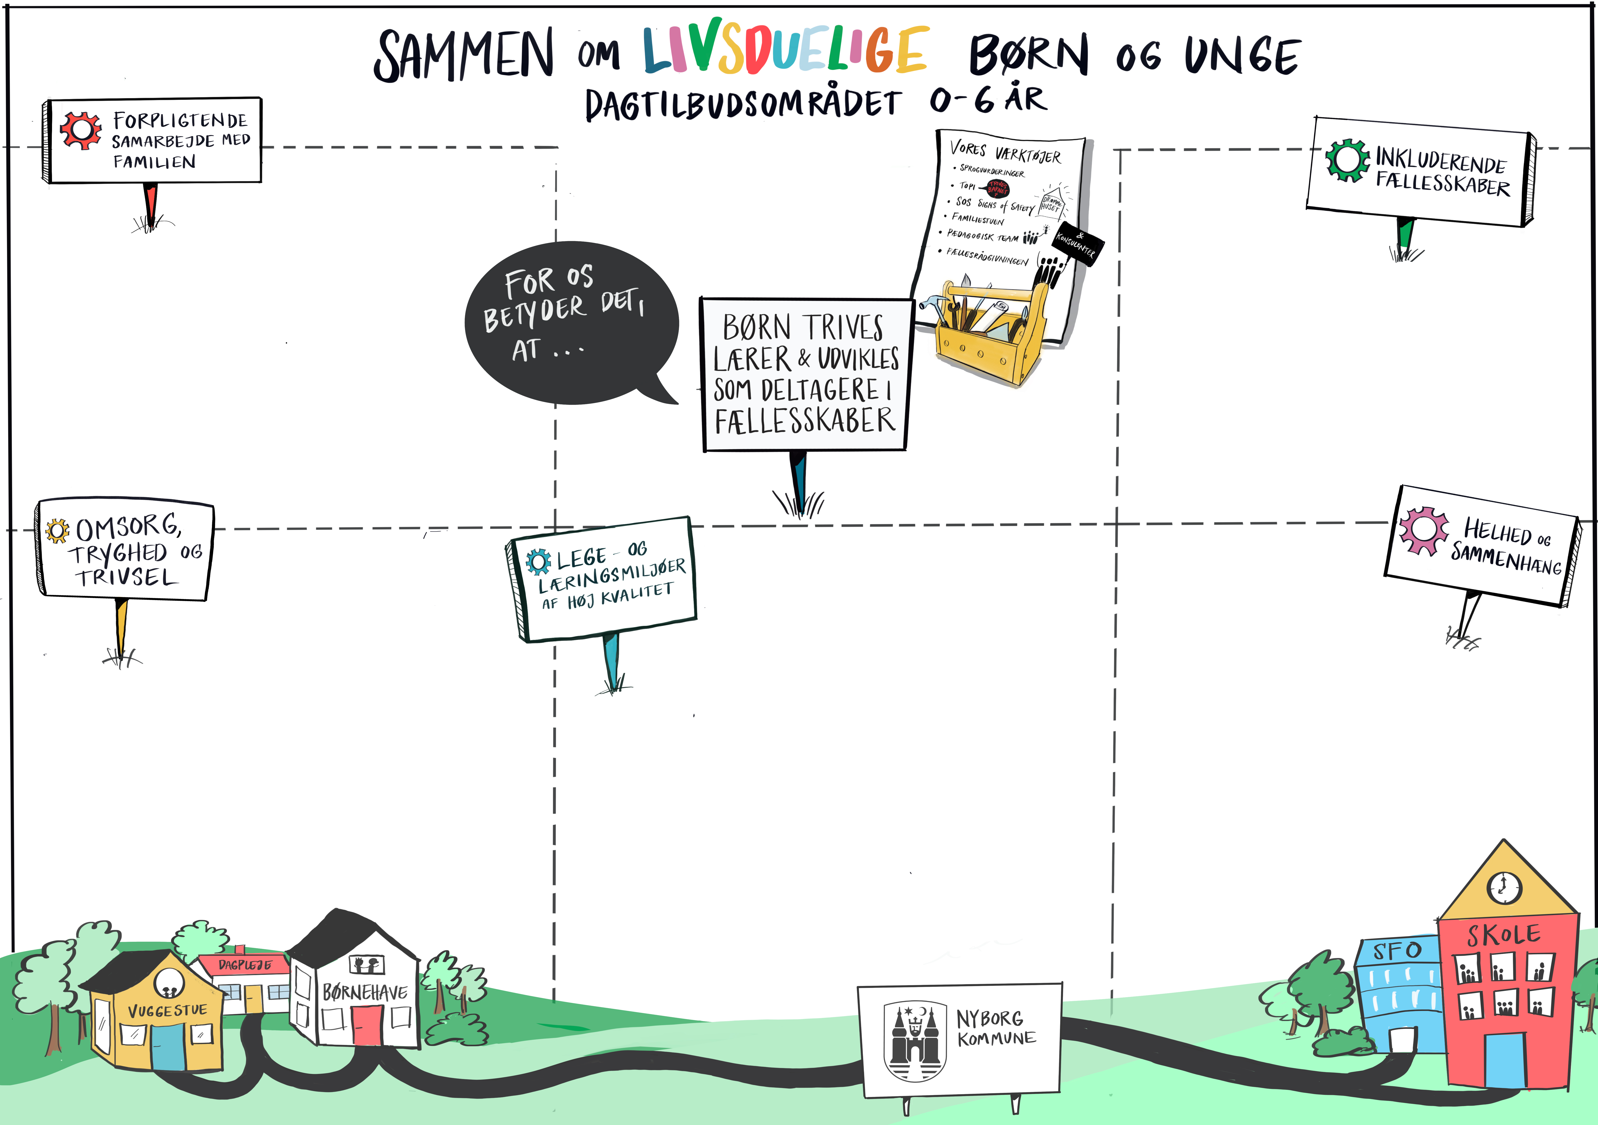 SAMMEN OM LIVSDUELIGE BØRN OG UNGE
DAGTILBUDSOMRÅDET 0-6 ÅR
FORPLIGTENDE
SAMARBEJDE MED
FAMILIEN
VORES VÆRKTØJER
• SPROGVURDERINGER
• TOPI
• SOS SIGNS of SAFETY
• FAMILIESTUEN
• PÆDAGOGISK TEAM
• FÆLLESRÅDGIVNINGEN
&
KONSULENTER
INKLUDERENDE
FÆLLESSKABER
FOR OS
BETYDER DET,
AT ...
BØRN TRIVES
LÆRER & UDVIKLES
SOM DELTAGERE I
FÆLLESSKABER
OMSORG,
TRYGHED OG
TRIVSEL
LEGE- OG
LÆRINGSMILJØER
AF HØJ KVALITET
HELHED OG
SAMMENHÆNG
VUGGESTUE
DAGPLEJE
BØRNEHAVE
NYBORG
KOMMUNE
SFO
SKOLE